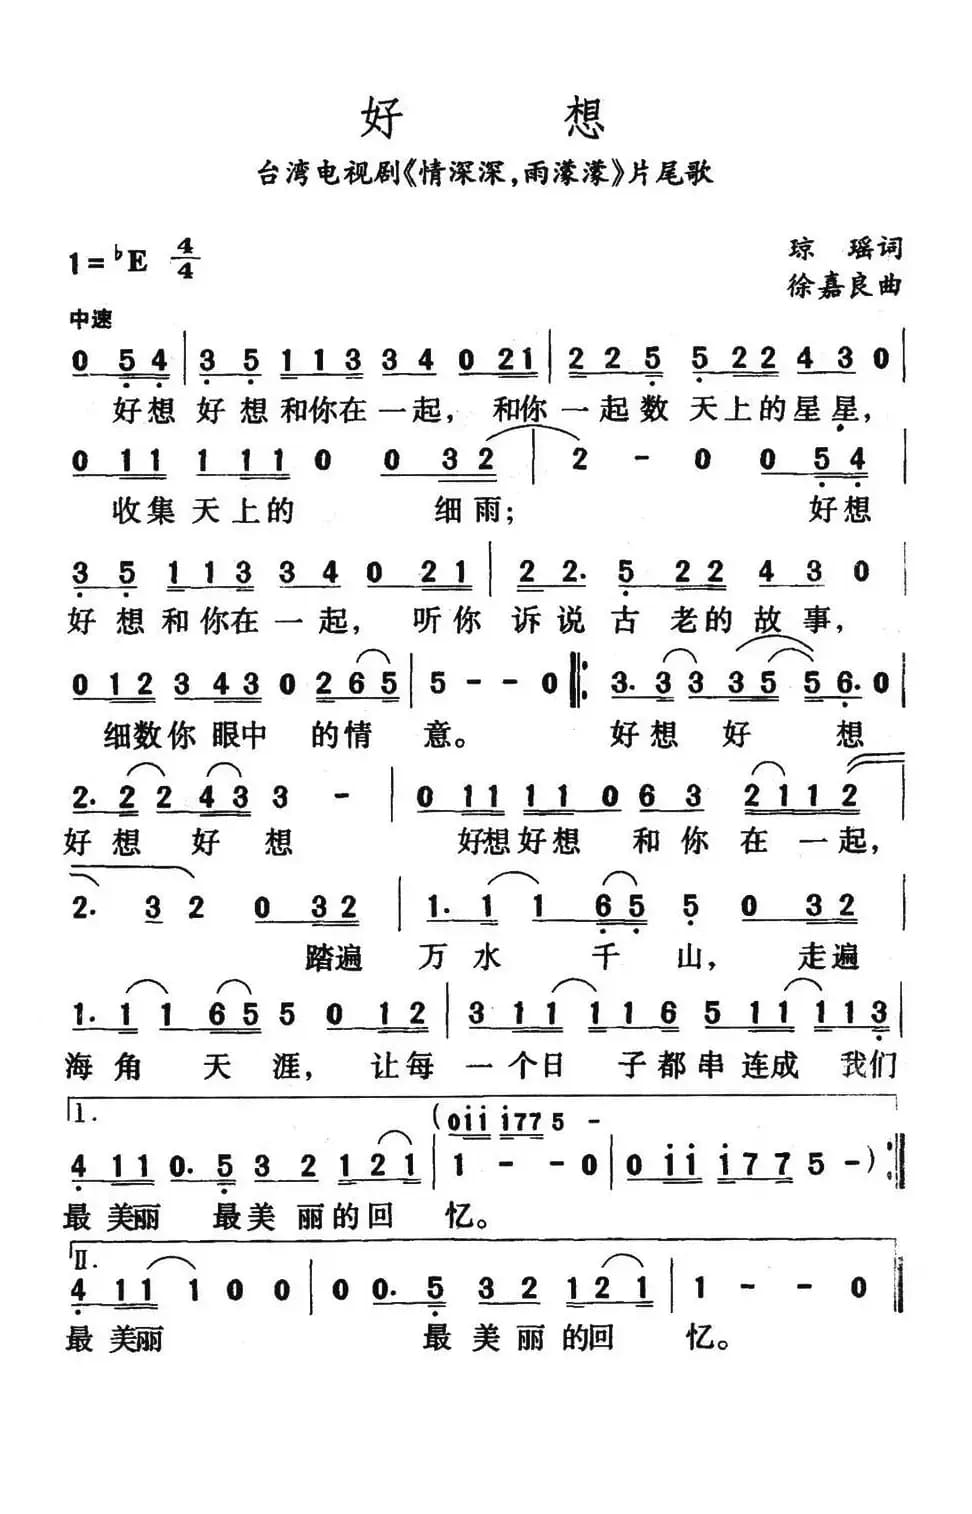 好 想
台湾电视剧《情深深,雨濛濛》片尾歌
1=♭E 4/4
琼 瑶词
徐嘉良曲
中速
0 5 4 | 3 5 1 1 3 3 4 0 2 1 | 2 2 5 5 2 2 4 3 0 |
好想 好 想 和你在 一 起， 和你 一 起 数 天上的星星，
0 1 1 1 1 1 0 0 3 2 | 2 - 0 0 5 4 |
收集 天上的 细雨； 好想
3 5 1 1 3 3 4 0 2 1 | 2 2. 5 2 2 4 3 0 |
好 想 和 你在 一 起， 听 你 诉 说 古 老的 故 事，
0 1 2 3 4 3 0 2 6 5 | 5 - - 0 ‖: 3. 3 3 3 5 5 6. 0 |
细数你 眼中 的情 意。 好 想 好 想
2. 2 2 4 3 3 - | 0 1 1 1 1 0 6 3 2 1 1 2 |
好 想 好 想 好想好想 和 你 在 一 起，
2. 3 2 0 3 2 | 1. 1 1 6 5 5 0 3 2 |
踏遍 万 水 千 山， 走遍
1. 1 1 6 5 5 0 1 2 | 3 1 1 1 1 6 5 1 1 1 1 3 |
海 角 天 涯， 让每 一 个日 子都串 连成 我们
1.
(0 i i i 7 7 5 -
4 1 1 0. 5 3 2 1 2 1 | 1 - - 0 | 0 i i i 7 7 5 - ) :‖
最 美丽 最美 丽的回 忆。
II.
4 1 1 1 0 0 | 0 0. 5 3 2 1 2 1 | 1 - - 0 ‖
最 美丽 最 美 丽 的回 忆。